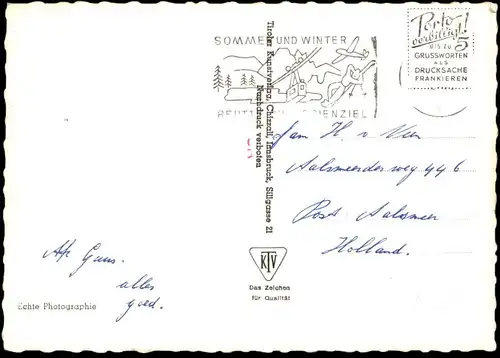 SOMMER UND WINTER
Porto
verbilligt!
BIS ZU 5
GRUSSWORTEN
ALS
DRUCKSACHE
FRANKIEREN
Tiroler Kunstverlag, Chizzali, Innsbruck, Sillgasse 21
Nachdruck verboten
fam H. v. Veen
Aalsmeerderweg 446
Post Aalsmeer
Holland.
alles
goed.
Echte Photographie
KTV
Das Zeichen
für Qualität